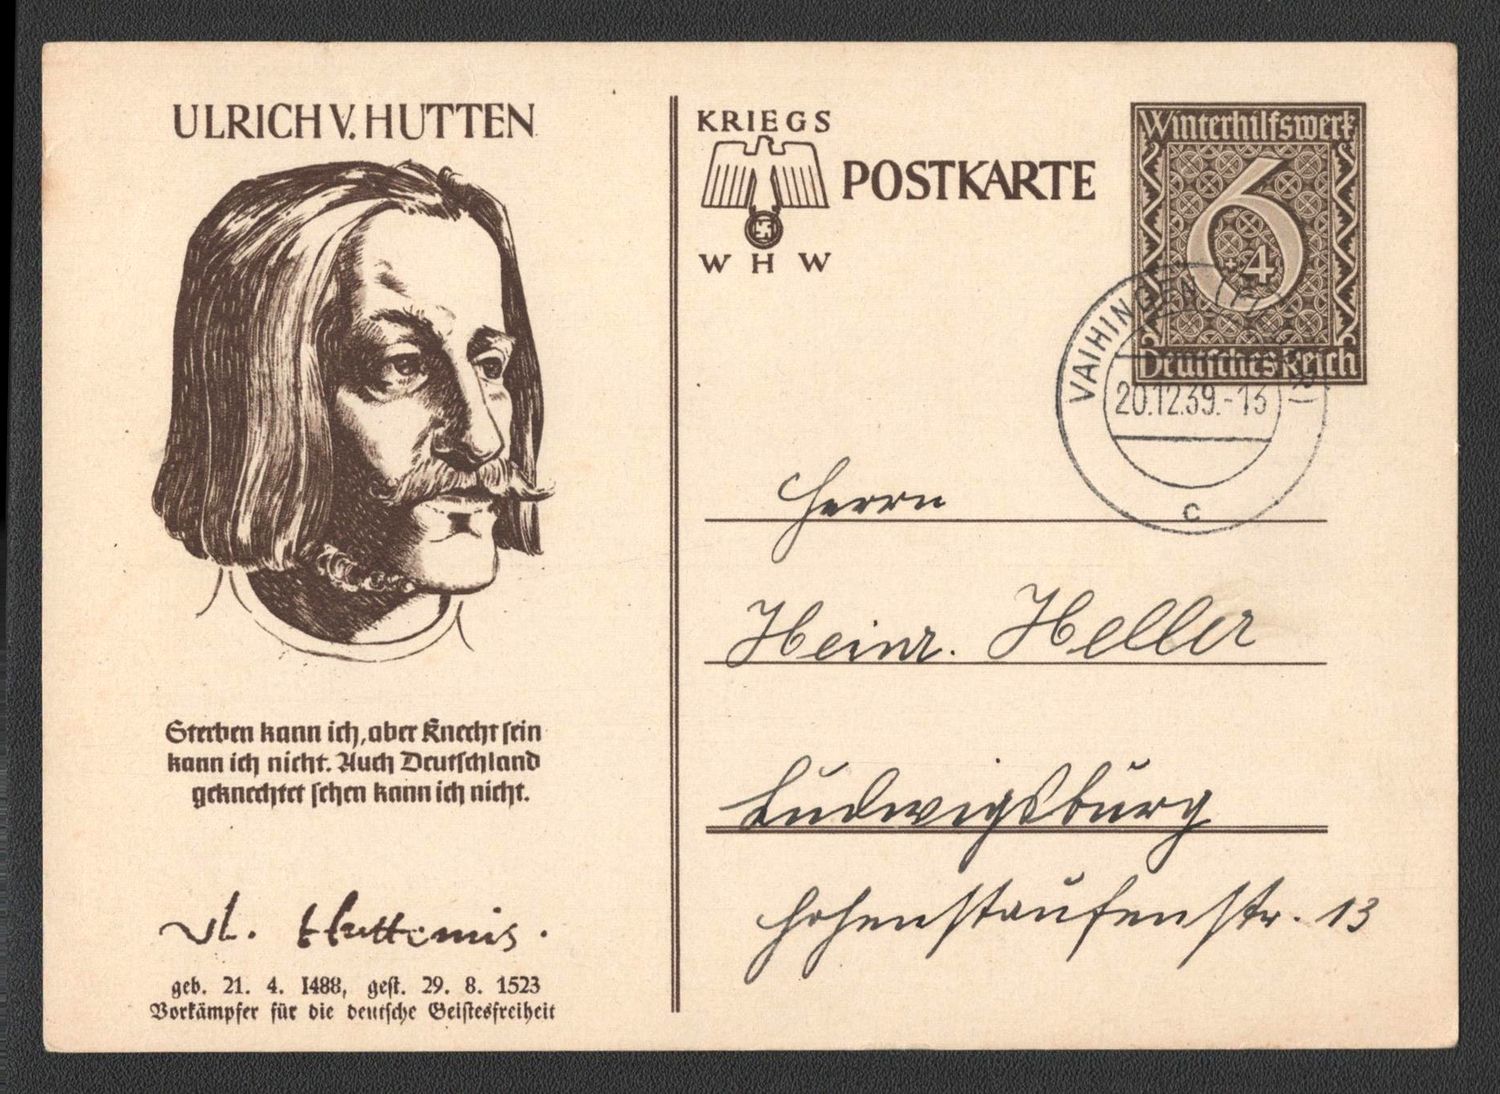 ULRICH V. HUTTEN
Sterben kann ich, aber Knecht sein
kann ich nicht. Auch Deutschland
geknechtet sehen kann ich nicht.
Ul. Huttenus.
geb. 21. 4. 1488, gest. 29. 8. 1523
Vorkämpfer für die deutsche Geistesfreiheit
KRIEGS
WHW
POSTKARTE
Winterhilfswerk
6
+4
Deutsches Reich
VAIHINGEN
20.12.39.-13
c
Herrn
Heinr. Heller
Ludwigsburg
Hohenstaufenstr. 13